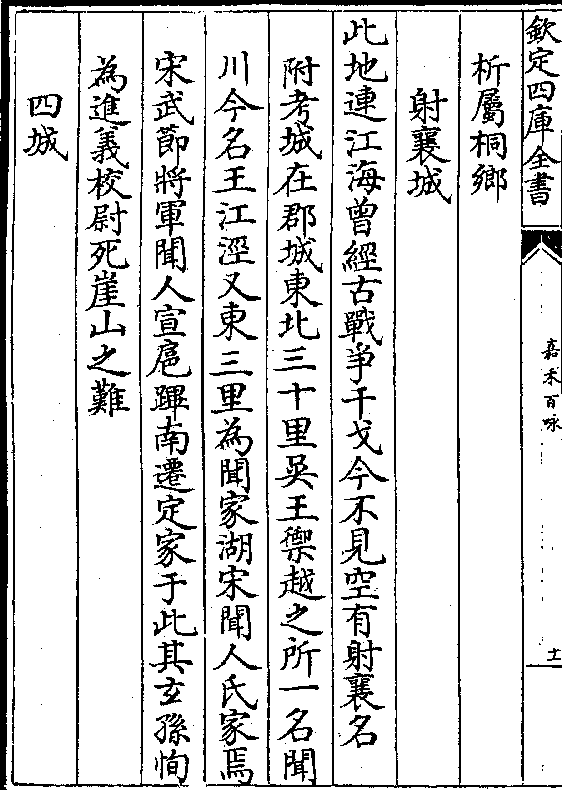 欽定四庫全書
嘉禾百咏
十一
析屬桐鄉
射襄城
此地連江海曾經古戰爭干戈今不見空有射襄名
附考城在郡城東北三十里吳王禦越之所一名聞
川今名王江涇又東三里為聞家湖宋聞人氏家焉
宋武節將軍聞人宣扈蹕南遷定家于此其玄孫恂
為進義校尉死崖山之難
四城